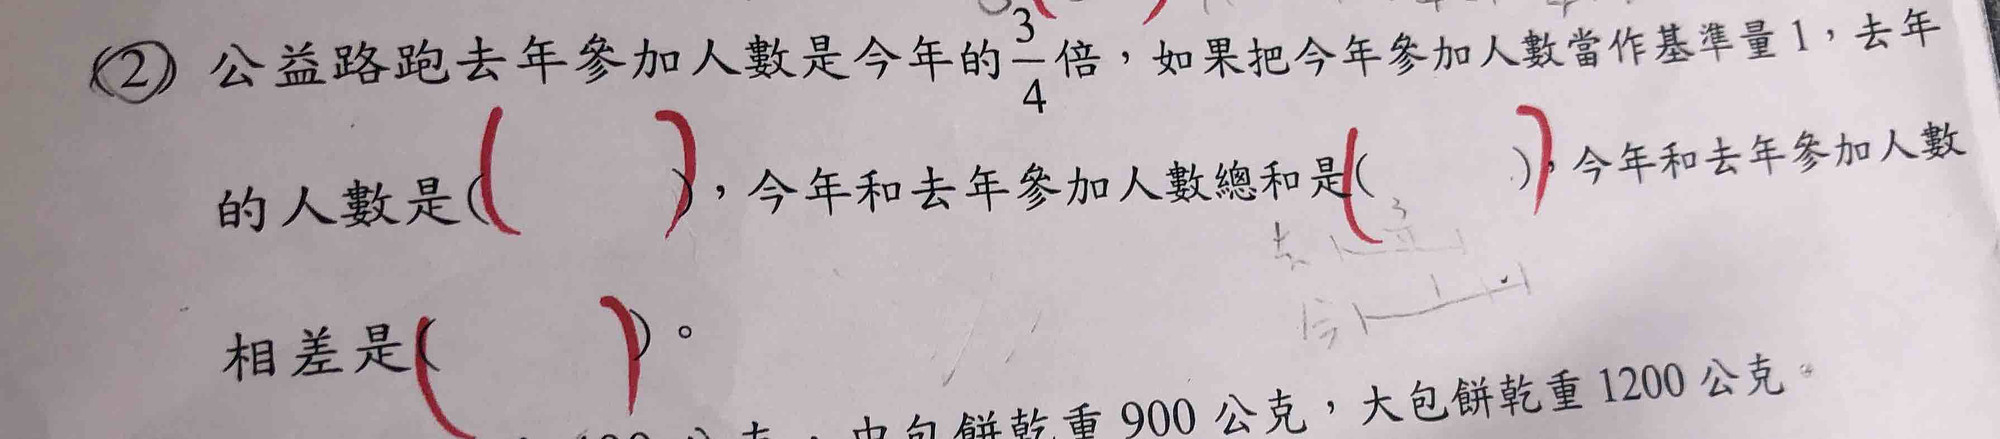 (2) 公益路跑去年參加人數是今年的3/4倍，如果把今年參加人數當作基準量1，去年
的人數是( )，今年和去年參加人數總和是( )，今年和去年參加人數
去 3
今 1
相差是( )。
中包餅乾重900公克，大包餅乾重1200公克。